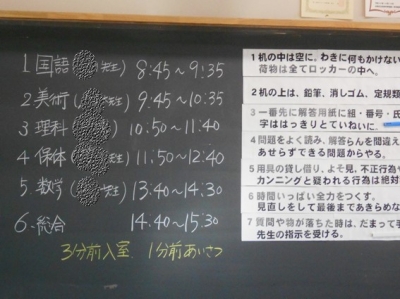 1 国語( 先生) 8:45~9:35
2 美術( 先生) 9:45~10:35
3 理科( 先生) 10:50~11:40
4 保体( 先生) 11:50~12:40
5. 数学( 先生) 13:40~14:30
6. 総合 14:40~15:30
3分前入室 1分前あいさつ
1 机の中は空に、わきに何もかけない
荷物は全てロッカーの中へ。
2 机の上は、鉛筆、消しゴム、定規類
3 一番先に解答用紙に組・番号・氏
字ははっきりとていねいに。
4 問題をよく読み、解答らんを間違え
あせらずできる問題からやる。
5 用具の貸し借り、よそ見、不正行為や
カンニングと疑われる行為は絶対
6 時間いっぱい全力をつくす。
見直しをして最後まであきらめな
7 質問や物が落ちた時は、だまって手
先生の指示を受ける。